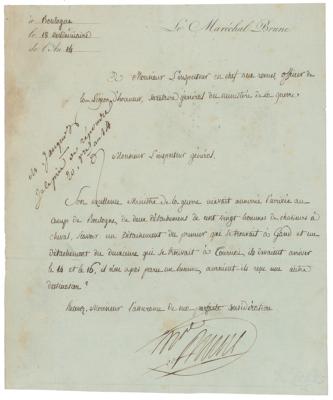 à Boulogne
le 18 vendémiaire
de l'An 14
Le Maréchal Brune
A Monsieur l'inspecteur en chef aux revues officier de
la Légion d'honneur, secrétaire général du ministère de la guerre.
20
Monsieur l'inspecteur général.
Son excellence Ministre de la guerre m'avait annoncé l'arrivée au
camp de Boulogne de deux détachements de cent vingt hommes de chasseurs à
cheval, savoir un détachement du premier que se trouvait à Gand et un
détachement du douzième que se trouvait à Tournai, ils devaient arriver
le 14 et le 16, il n'en a pas paru un homme, auraient ils reçu une autre
destination?
Recevez, Monsieur l'assurance de ma parfaite considération
Brune